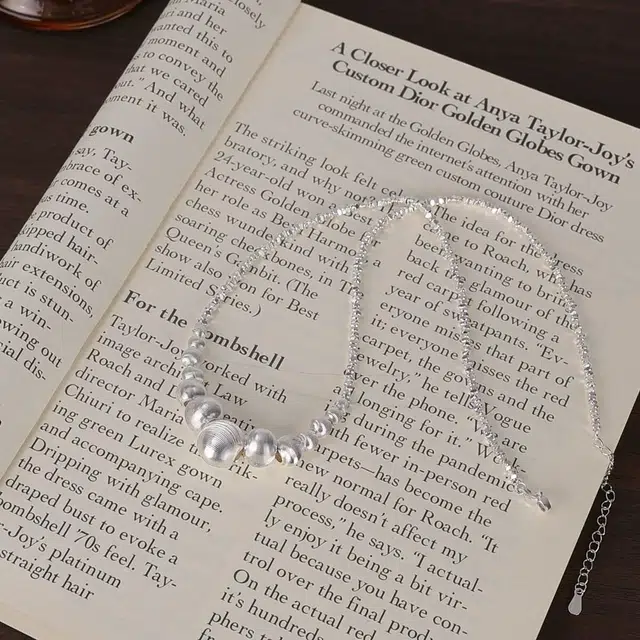 closely
and her
wanted this to
moment and
to convey the
that we cared
out." And what
moment it was.
gown
say, Tay-
of ex-
comes at a
time.
product of
hair-
handiwork of
hair extensions,
is stun-
a win-
out
dis-
A Closer Look at Anya Taylor-Joy's
Custom Dior Golden Globes Gown
Last night at the Golden Globes, Anya Taylor-Joy
commanded the internet's attention with her
curve-skimming green custom couture Dior dress
The striking look felt
bratory, and why not
24-year-old won a Best
Actress Golden Globe
her role as Beth Harmon
chess wunderkind with
soaring cheekbones, in The
Queen's Gambit. (The
show also won for Best
Limited Series.)
For the Bombshell
Taylor-Joy worked with
image architect Law
Roach and
director Maria
Chiuri to realize
ing green Lurex gown
and accompanying cape.
Dripping with glamour,
the dress came with a
draped bust to evoke a
bombshell 70s feel. Tay-
lor-Joy's platinum
straight hair
The idea for the dress
came to Roach, who
been wanting to bring
back the glamour of the
red carpet following a
year of sweatpants. "Ev-
eryone misses that part of
it; everyone misses the
carpet, the gowns, the
jewelry," he tells Vogue
over the phone. "We are
longing for it." While
during the pandemic
with fewer in-person red
carpets—has become the
new normal for Roach. "It
really doesn't affect my
process," he says. "I actual-
ly enjoy it being a bit vir-
tual because you have con-
trol over the final prod
On the actual red
it's hundreds
phers